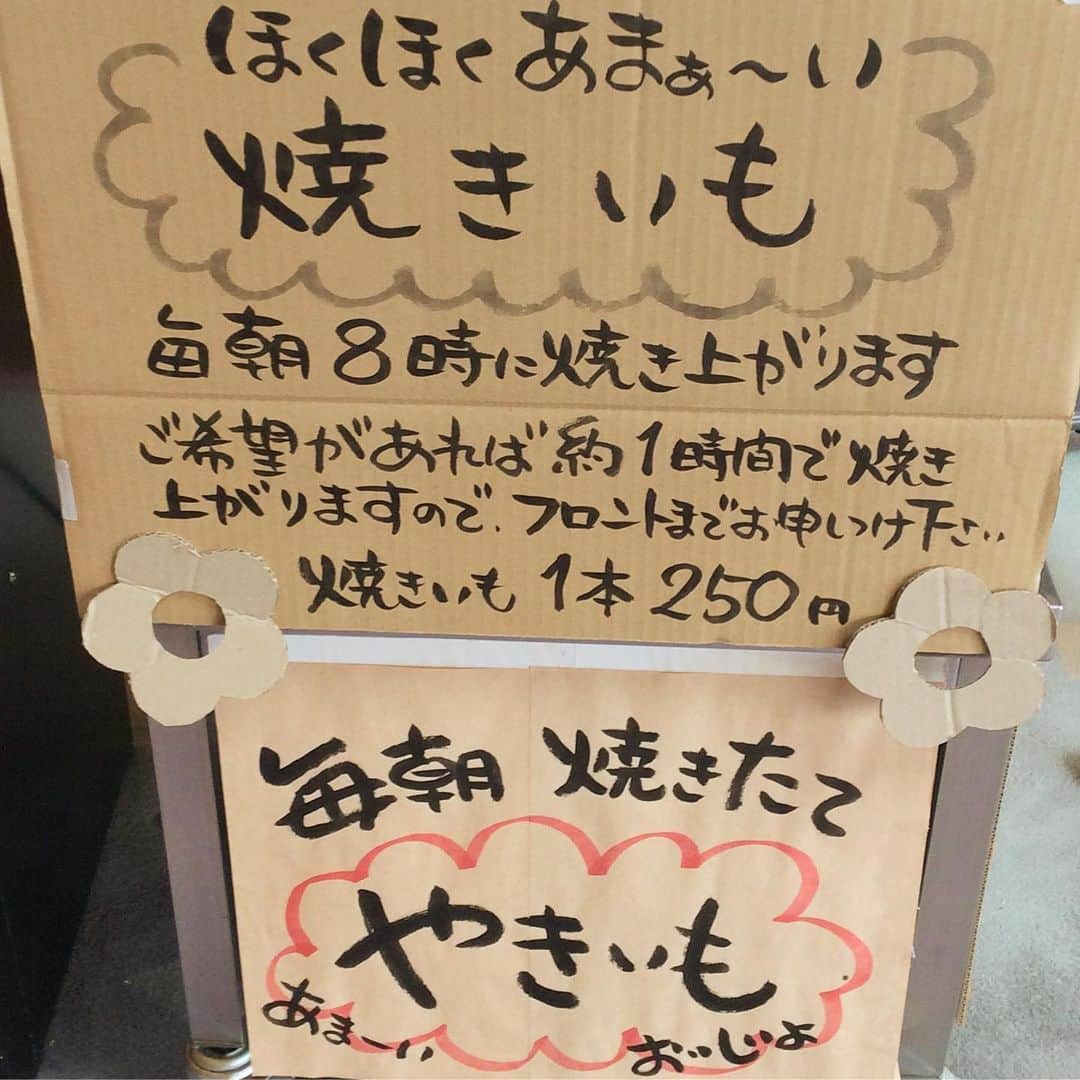 ほくほくあまぁ〜い
焼きいも
毎朝8時に焼き上がります
ご希望があれば約1時間で焼き
上がりますので、フロントまでお申しつけ下さい
焼きいも 1本 250円
毎朝 焼きたて
やきいも
あまーい
おいじょ